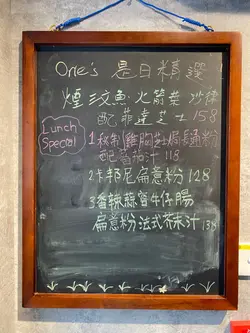 One's 是日精選
煙三文魚·火箭菜 沙律
配菲達芝士 158
Lunch Special
1. 秘制雞胸芝士焗通粉
配蕃茄汁 118
2. 卡邦尼扁意粉 128
3. 香辣蒜蓉牛仔腸
扁意粉法式芥末汁 138